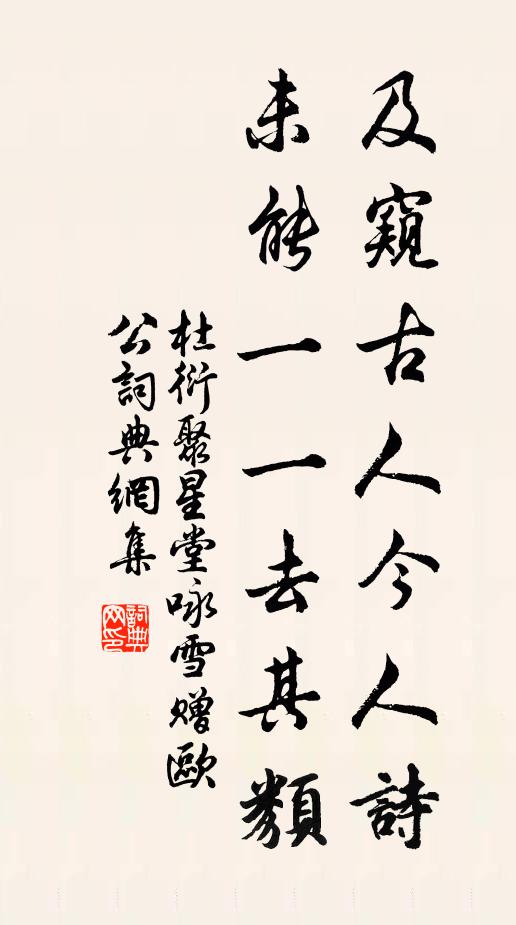 及窺古人今人詩
未能一一去其纇
杜衍聚星堂咏雪赠歐
公詞典網集
詞典
网印